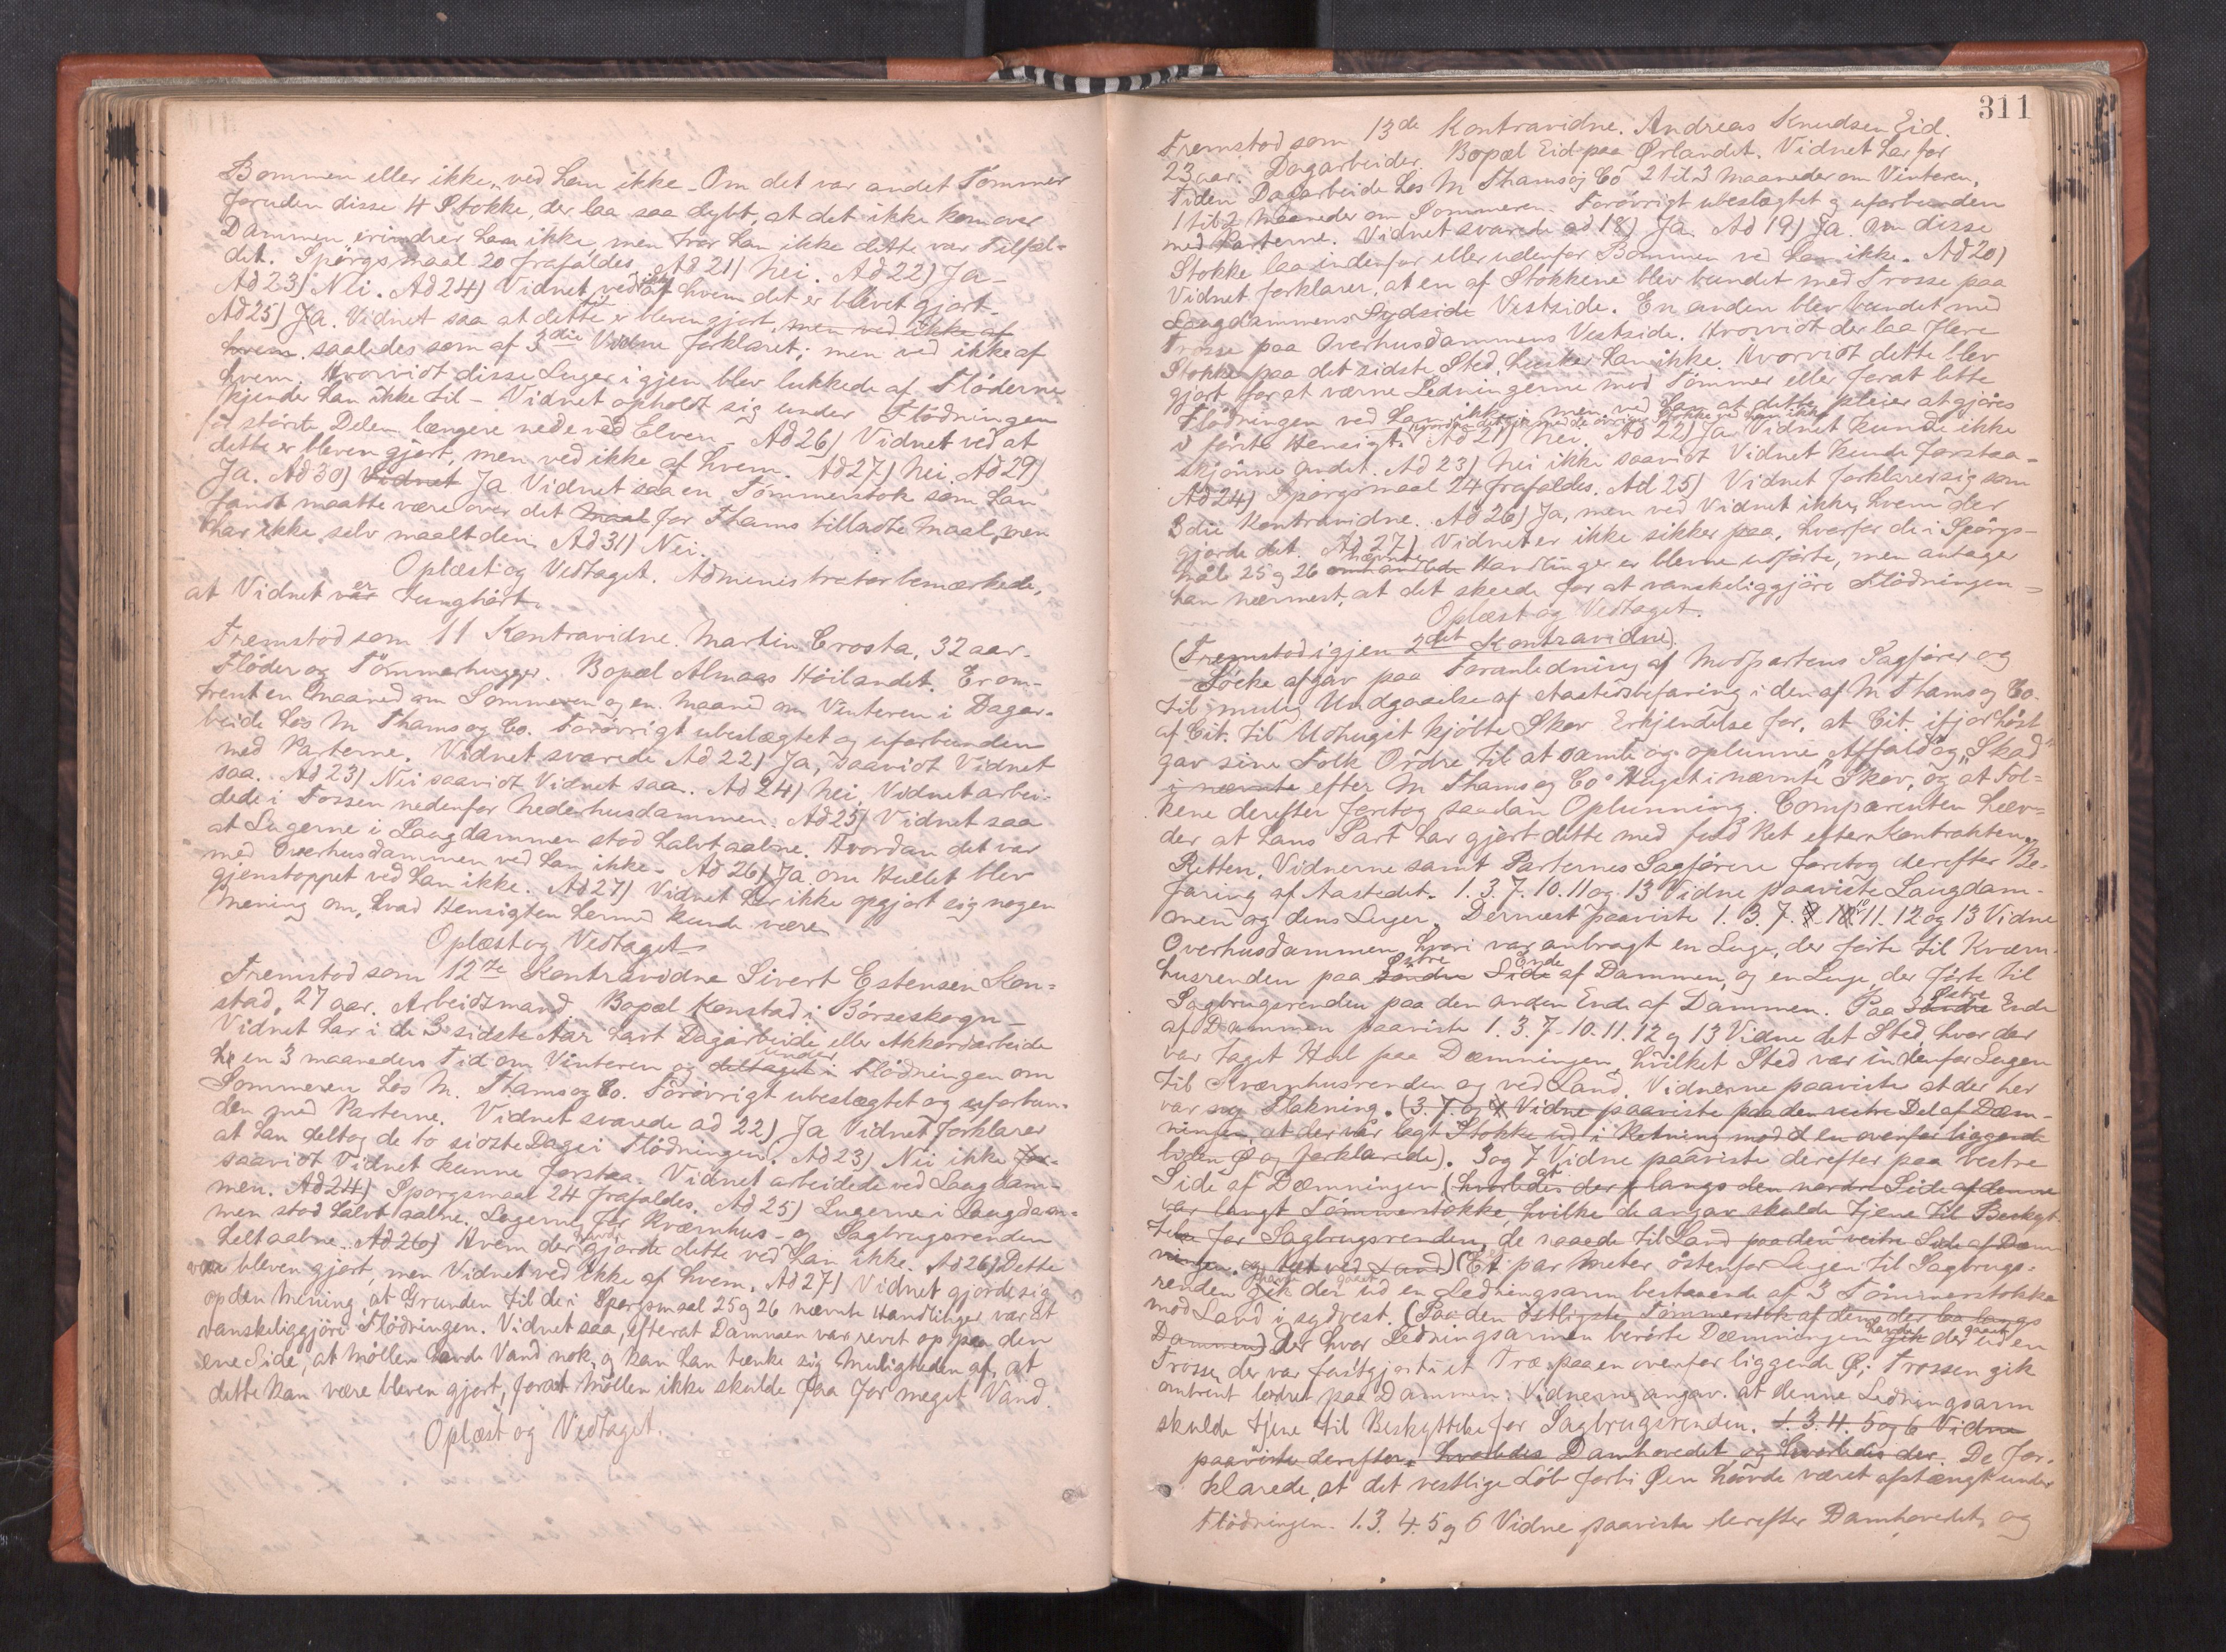 Bommen eller ikke, ved han ikke. Om det var andet Tømmer
foruden disse 4 Stokke, der laa saa dybt, at det ikke kom over
Dammen, erindrer han ikke, men tror han ikke dette var Tilfæl-
det. Spørgsmaal 20 frafaldes. Ad 21) Nei. Ad 22) Ja -
Ad 23) Nei. Ad 24) Vidnet ved ikke af hvem det er blevet gjort.
Ad 25) Ja. Vidnet saa at dette er bleven gjort, men ved ikke af
hvem. saaledes som af 3die Vidne forklaret; men ved ikke af
hvem. Hvorvidt disse Luger igjen blev lukkede af Fløderne
kjender han ikke til - Vidnet opholdt sig under Flødningen
for største Delen længere nede ved Elven - Ad 26) Vidnet ved at
dette er bleven gjort, men ved ikke af hvem. Ad 27) Nei. Ad 29)
Ja. Ad 30) Vidnet Ja Vidnet saa en Tømmerstok som han
fandt maatte være over det Maal for Thams tilladte Maal, men
har ikke selv maalt den. Ad 31) Nei.
Oplæst og Vedtaget. Administrator bemærkede,
at Vidnet var er tunghørt.
Fremstod som 11 Kontravidne. Martin Crosta, 32 aar.
Fløder og Tømmerhugger. Bopæl Almaas Høilandet. Er om-
trent en Maaned om Sommeren og en Maaned om Vinteren i Dagar-
beide hos M. Thams og Co. Forøvrigt ubeslægtet og uforbunden
med Parterne. Vidnet svarede Ad 22) Ja, saavidt Vidnet
saa. Ad 23) Nei saavidt Vidnet saa. Ad 24) Nei, Vidnet arbei-
dede i Fossen nedenfor Nederhusdammen. Ad 25) Vidnet saa
at Lugerne i Laugdammen stod halvt aabne. Hvordan det var
med Overhusdammen ved han ikke - Ad 26) Ja, om Hullet blev
gjenstoppet ved han ikke. Ad 27) Vidnet har ikke opgjort sig nogen
Mening om, hvad Hensigten hermed kunde være.
Oplæst og Vedtaget.
Fremstod som 12te Kontravidne Sivert Estensen Kon-
stad, 27 aar. Arbeidsmand. Bopæl Konstad i Børseskogn -
Vidnet har i de 3 sidste Aar havt Dagarbeide eller Akkordarbeide
i en 3 maaneders Tid om Vinteren og deltaget i under Flødningen om
Sommeren hos M. Thams og Co. Forøvrigt ubeslægtet og uforbun-
den med Parterne. Vidnet svarede ad 22) Ja Vidnet forklarer
at han deltog de to sidste Dage i Flødningen. Ad 23) Nei ikke for-
saavidt Vidnet kunne forstaa. Vidnet arbeidede ved Laugdam-
men. Ad 24) Spørgsmaal 24 frafaldes. Ad 25) Lugerne i Laugdam-
men stod halvt aabne. Lugerne for Kværnhus- og Sagbrugsrenden
helt aabne. Ad 26) Hvem der havde gjorde dette ved han ikke. Ad 26) Dette
var bleven gjort, men Vidnet ved ikke af hvem. Ad 27) Vidnet gjorde sig
op den Mening, at Grunden til de i Spørgsmaal 25 og 26 nævnte Handlinger var at
vanskeliggjøre Flødningen. Vidnet saa, efterat Dammen var revet op paa den
ene Side, at Møllen havde Vand nok, og kan han tænke sig Muligheden af, at
dette kan være bleven gjort, forat Møllen ikke skulde faa for meget Vand.
Oplæst og Vedtaget.
311
Fremstod som 13de Kontravidne. Andreas Knudsen Eid.
23 aar. Dagarbeider. Bopæl Eid paa Ørlandet. Vidnet har for
Tiden Dagarbeide hos M Thams og Co 2 til 3 Maaneder om Vinteren,
1 til 2 Maaneder om Sommeren. Forøvrigt ubeslægtet og uforbunden
med Parterne. Vidnet svarede ad 18) Ja. Ad 19) Ja. Om disse
Stokke laa indenfor eller udenfor Bommen ved han ikke. Ad 20)
Vidnet forklarer, at en af Stokkene blev bundet med Trosse paa
Laugdammens Sydside Vestside. En anden blev bundet med
Trosse paa Overhusdammens Vestside. Hvorvidt der laa flere
Stokke paa det sidste Sted, husker han ikke. Hvorvidt dette blev
gjort for at værne Ledningerne mod Tømmer eller forat lette
Flødningen ved han ikke, men ved han at dette pleier at gjøres
i første Hensigt. hvordan det gik med de øvrige Stokke ved han ikke Ad 21) Nei. Ad 22) Ja Vidnet kunde ikke
skjønne andet. Ad 23) Nei ikke saavidt Vidnet kunde forstaa -
Ad 24) Spørgsmaal 24 frafaldes. Ad 25) Vidnet forklarer sig som
3die Kontravidne. Ad 26) Ja, men ved Vidnet ikke, hvem der
gjorde det. Ad 27) Vidnet er ikke sikker paa, hvorfor de i Spørgs-
maal 25 og 26 nævnte Handlinger er blevne udførte, men antager
han nærmest, at det skeede for at vanskeliggjøre Flødningen -
Oplæst og Vedtaget.
(Fremstod igjen 2det Kontravidne)
Løcke afgav paa Foranledning af Modpartens Sagfører og
til mulig Undgaaelse af Aastedsbefaring i den af M Thams og Co.
af Cit. til Uthugst kjøbte Skov Erkjendelse for, at Cit. ifjor Høst
gav sine Folk Ordre til at samle og oplunne Affald og "Skad"
i nævnte efter M Thams og Co's Hugst i nævnte Skov, og at Fol-
kene derefter foretog saadan Oplunning. Comparenten hæv-
der at hans Part har gjort dette med fuld Ret efter Kontrakten.
Retten, Vidnerne samt Parternes Sagførere foretog derefter Be-
faring af Aastedet. 1. 3. 7. 10. 11 og 13 Vidne paaviste Laugdam-
men og dens Luger. Dernæst paaviste 1. 3. 7. 10 11. 12 og 13 Vidne
Overhusdammen, hvori var anbragt en Luge, der førte til Kværn-
husrenden paa søndre Side Østre Ende af Dammen, og en Luge, der førte til
Sagbrugsrenden paa den anden Ende af Dammen. Paa Søndre Østre Ende
af Dammen paaviste 1. 3. 7. 10. 11. 12 og 13 Vidne det Sted, hvor der
var taget Hul paa Dæmningen, hvilket Sted var indenfor Lugen
til Kværnhusrenden og ved Land. Vidnerne paaviste at der her
var ny Flakning. (3. 7. og Vidne paaviste paa den vestre Del af Dæm-
ningen, at der var lagt Stokke ud i Retning mod den ovenfor liggende
liden Ø og forklarede). 3 og 7 Vidne paaviste derefter paa vestre
Side af Dæmningen (hvorledes der langs den nordre Side af denne
var langt Tømmerstokke, hvilke de angav skulde tjene til Beskyt-
telse for Sagbrugsrenden, de naaede til Land paa den vestre Side af Dæm
ningen. og tæt ved Land) (Et par Meter østenfor Lugen til Sagbrugs-
renden gik havde gaaet der ud en Ledningsarm bestaaende af 3 Tømmerstokke
mod Land i sydvest. (Paa den østligste Tømmerstok af dem der laa langs
Dammen) Der hvor Ledningsarmen berørte Dæmningen gik havde der gaaet ud en
Trosse der var fastgjort i et Træ paa en ovenfor liggende Ø; Trossen gik
omtrent lodret paa Dammen. Vidnerne angav at denne Ledningsarm
skulde tjene til Beskyttelse for Sagbrugsrenden. 1. 3. 4. 5 og 6 Vidne
paaviste derefter. hvorledes Damhovedet og hvorledes der. De for-
klarede, at det vestlige Løb forbi Øen havde været afstængt under
Flødningen. 1. 3. 4. 5 og 6 Vidne paaviste derefter Damhovedet, og